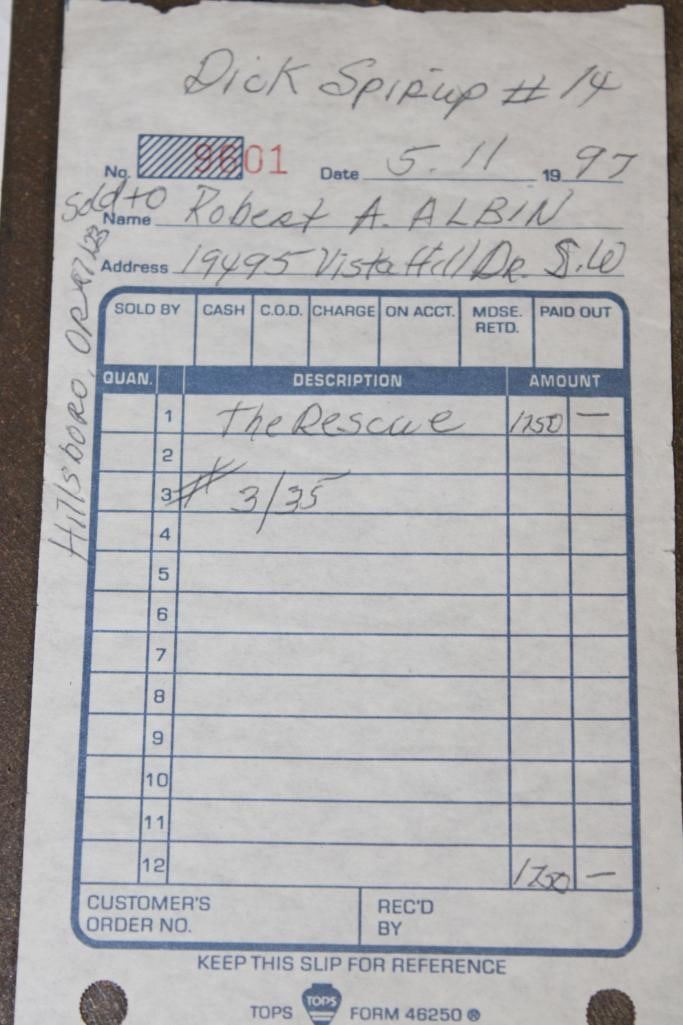 Dick Spirup # 14
No. 9601 Date 5.11 1997
Sold to
Name Robert A. ALBIN
Address 19495 Vista Hill Dr. S.W
Hillsboro, OR 97123
SOLD BY CASH C.O.D. CHARGE ON ACCT. MDSE. RETD. PAID OUT
QUAN. DESCRIPTION AMOUNT
1 The Rescue 1250 —
2
3 # 3/35
4
5
6
7
8
9
10
11
12 1250 —
CUSTOMER'S ORDER NO. REC'D BY
KEEP THIS SLIP FOR REFERENCE
TOPS TOPS FORM 46250 ®